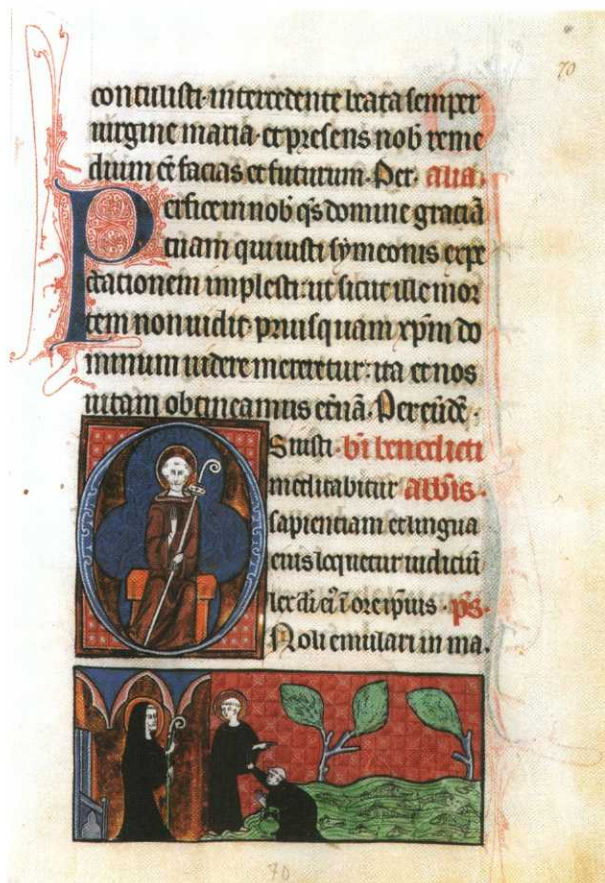 70
contulisti· intercedente beata semper
uirgine maria· et presens nob reme
dium eē facias et futurum· Per· alia·
Perfice in nob q̄s domine gratiā
tuam qui iusti symeonis expe
ctationem implesti: ut sicut ille mor
tem non uidit priusquam xp̄m do
minum uidere meretetur: ita et nos
uitam obtineamus et̄nā· Per eūdē·
OS iusti· bi benedicti
meditabitur abbis·
sapientiam et lingua
eius loquetur iudiciū
lex di ei' ī ore ipsius· ps·
Noli emulari in ma·
70